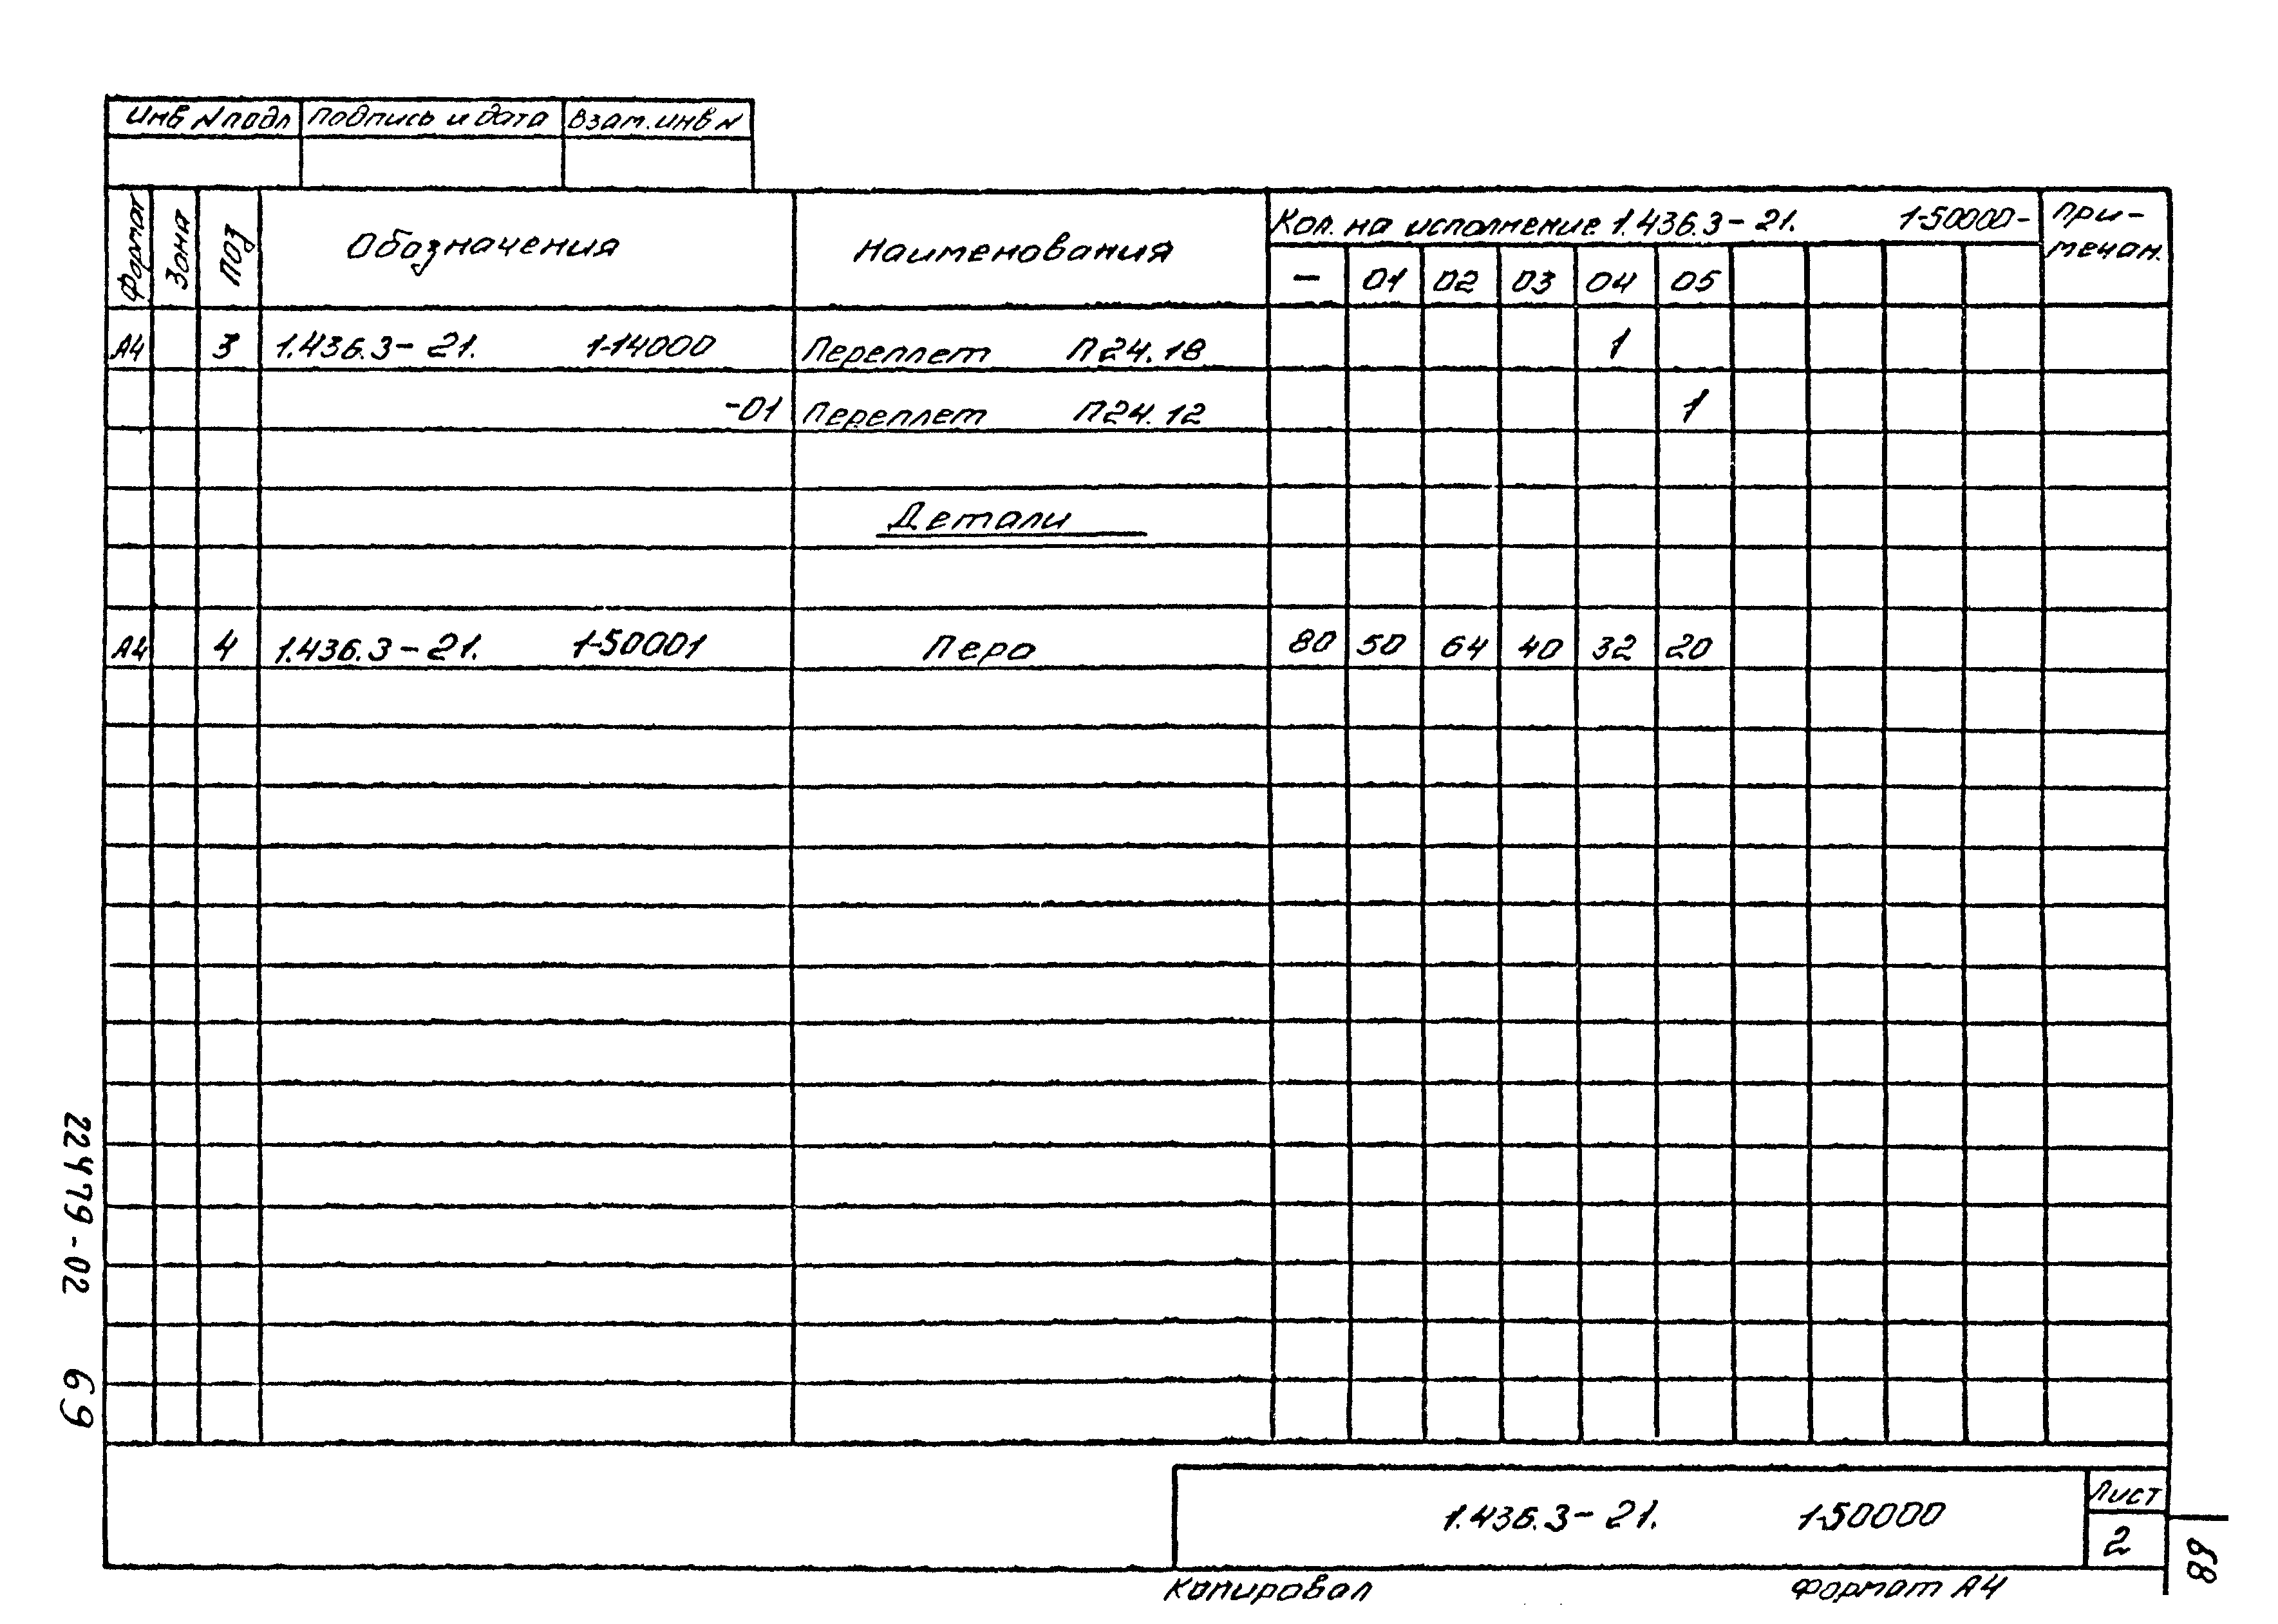 Инв N подл Подпись и дата Взам. инв N
Формат Зона Поз Обозначения Наименования Кол. на исполнение 1.436.3-21. 1-50000- При-мечан.
— 01 02 03 04 05
А4 3 1.436.3-21. 1-14000 Переплет П24.18 1
-01 Переплет П24.12 1
Детали
А4 4 1.436.3-21. 1-50001 Перо 80 50 64 40 32 20
22479-02 69
1.436.3-21. 1-50000 Лист
2
68
Копировал Формат А4